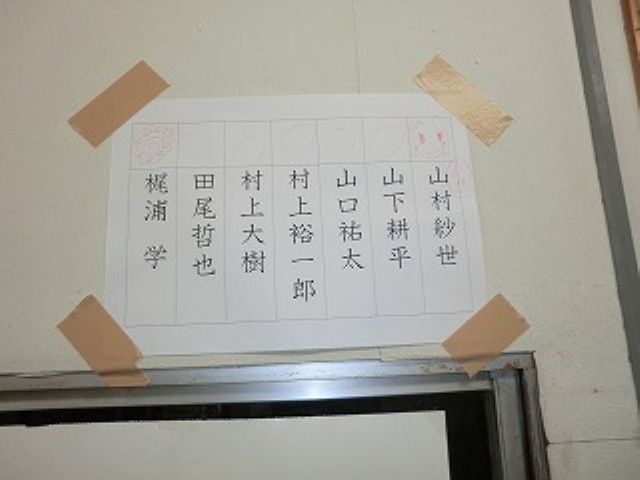 山村紗世
山下耕平
山口祐太
村上裕一郎
村上大樹
田尾哲也
梶浦 学